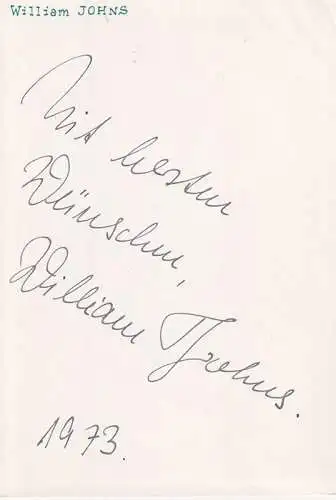 William JOHNS
Mit besten
Wünschen,
William Johns.
1973.